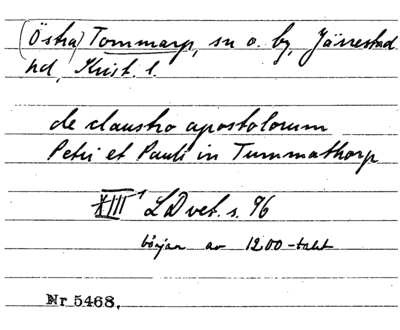 (Östra) Tommarp, sn o. by, Järrestad
hd, Krist. l.
de claustro apostolorum
Petri et Pauli in Tummathorp
XIII¹ LDvet. s. 96
början av 1200-talet
Nr 5468.